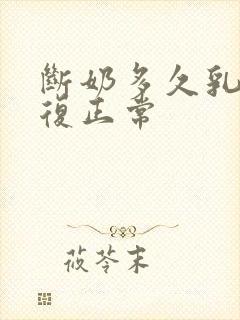 斷奶多久乳
復正常
莜苓末